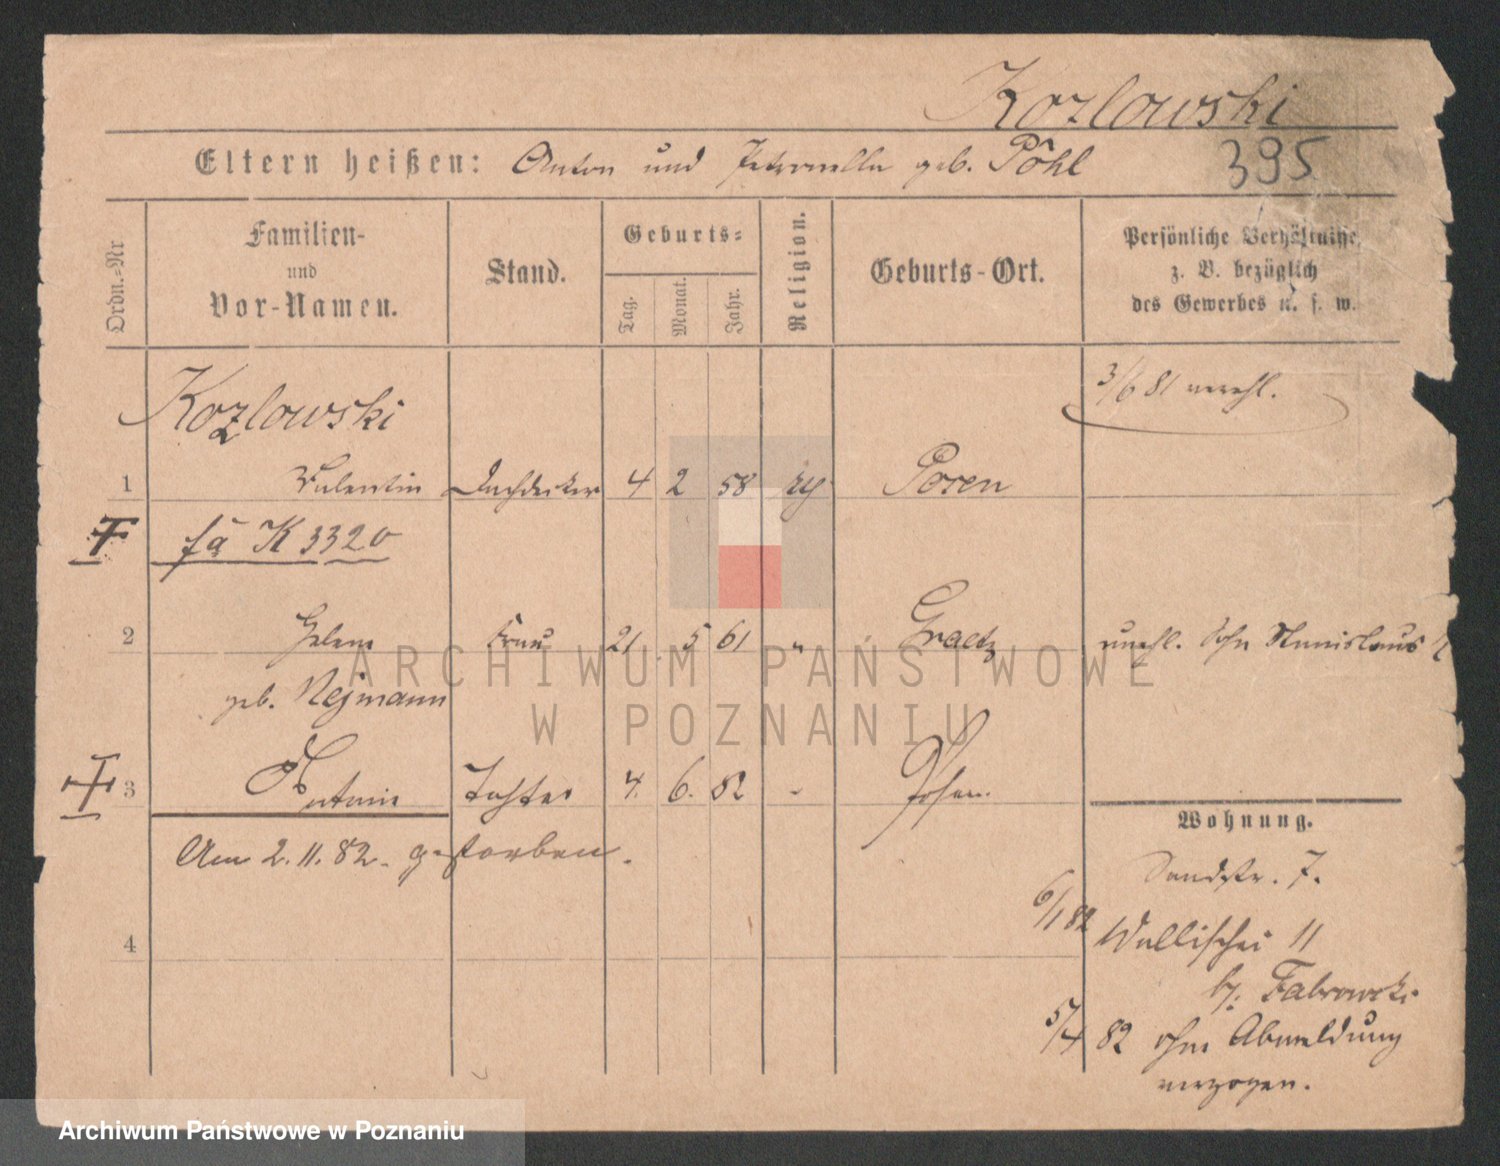 Kozlowski
Eltern heißen: Anton und Petronella geb. Pohl
395
Ordn.=Nr
Familien-
und
Vor-Namen.
Stand.
Geburts=
Tag.
Monat.
Jahr.
Religion.
Geburts-Ort.
Persönliche Verhältnisse,
z. B. bezüglich
des Gewerbes u. s. w.
3/6 81 verehl.
Kozlowski
1 Valentin Dachdecker 4 2 58 Posen
K 3320
2 Helene Frau 21 5 61 " Graetz unehl. Sohn Stanislaus
geb. Nejmann
3 Antonie Tochter 4. 6. 82 - Posen.
Am 2. 11. 82. gestorben.
Wohnung.
Sandstr. 7.
6/1 82 Wallischei 11
4
b/. Fabrowski
5/4 82 ohne Abmeldung
verzogen.
ARCHIWUM PAŃSTWOWE
W POZNANIU
Archiwum Państwowe w Poznaniu